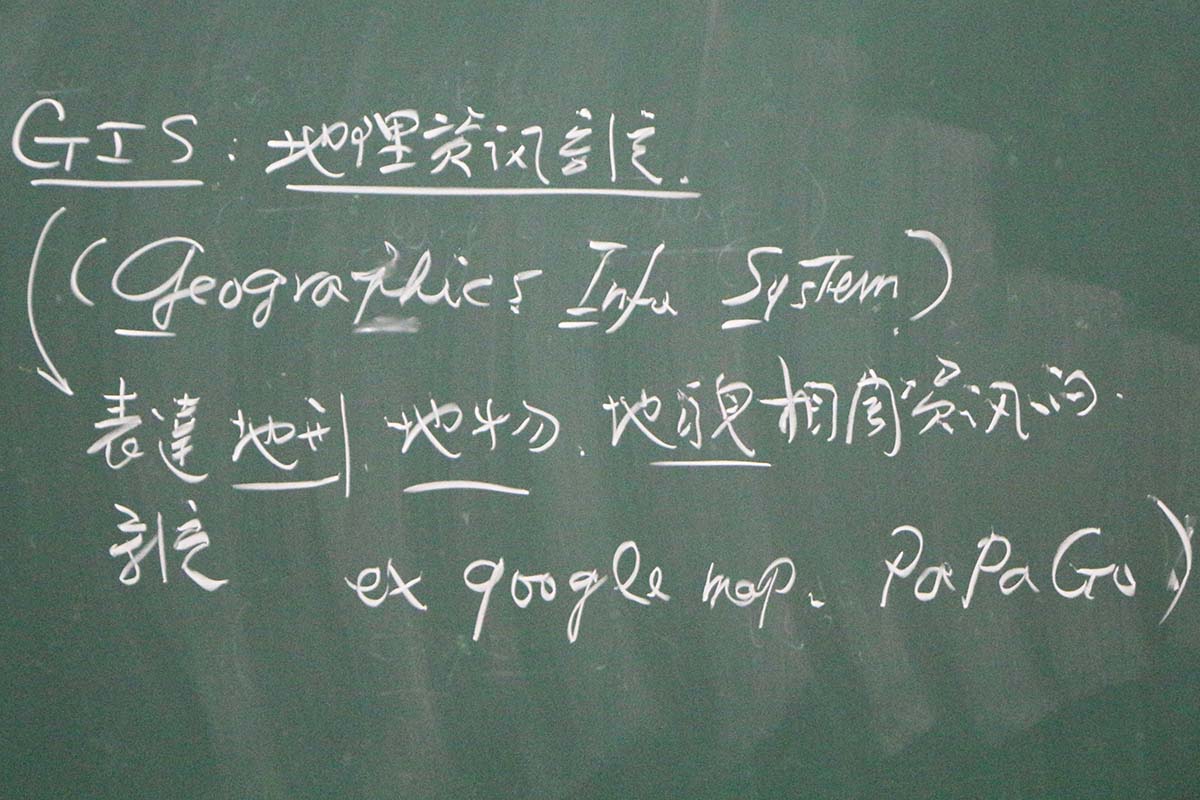 GIS：地理資訊系統.
(Geographics Info System)
表達地形.地物.地貌相關資訊的.
系統 ex google map、PaPaGo)